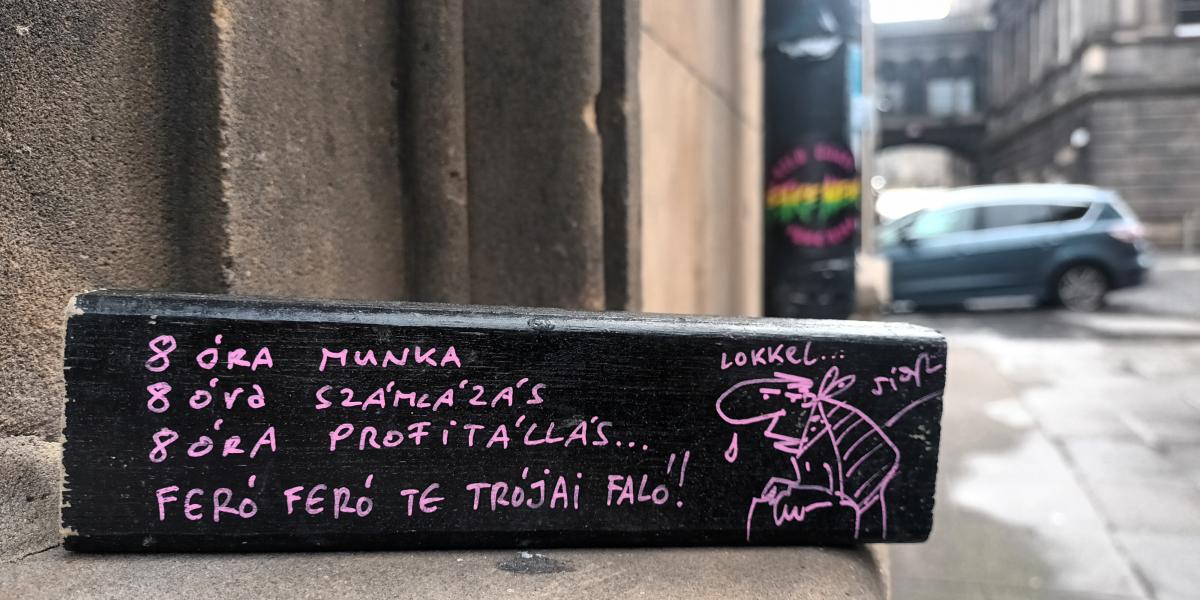 8 ÓRA MUNKA
8 óra SZÁMLÁZÁS
8 ÓRA PROFITÁLLÁS...
FERÓ FERÓ TE TRÓJAI FALÓ!
LOKKEL...